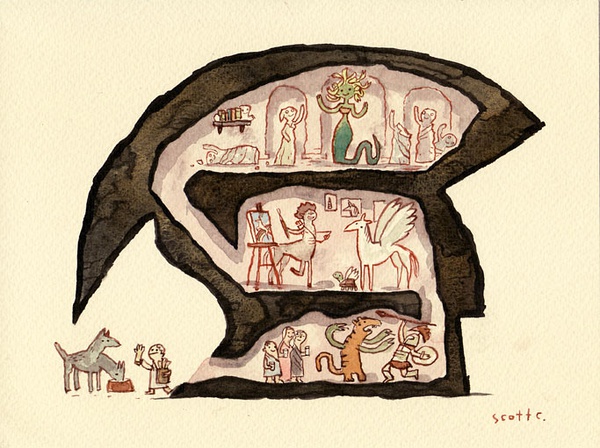 scott c.